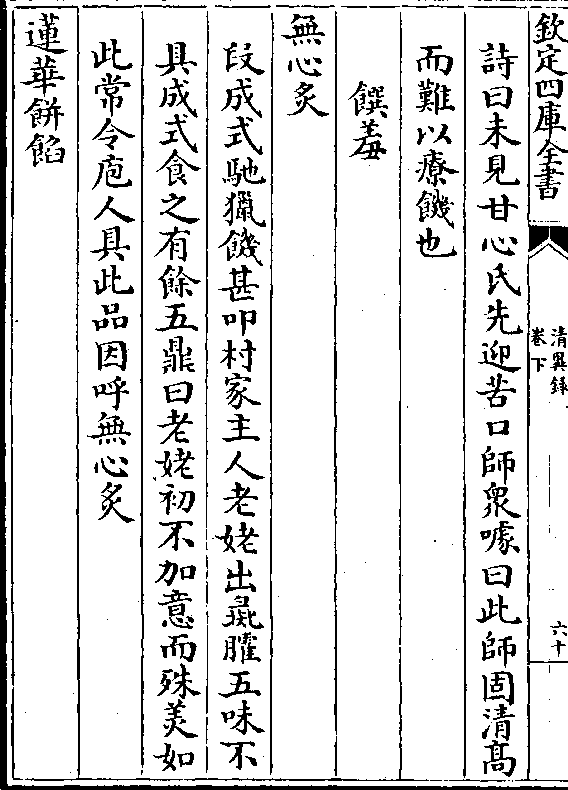 欽定四庫全書
清異錄
卷下
六十
詩曰未見甘心氏先迎苦口師衆噱曰此師固清髙
而難以療饑也
饌羞
無心炙
段成式馳獵饑甚叩村家主人老姥出彘臛五味不
具成式食之有餘五鼎曰老姥初不加意而殊美如
此常令庖人具此品因呼無心炙
蓮華餅餡